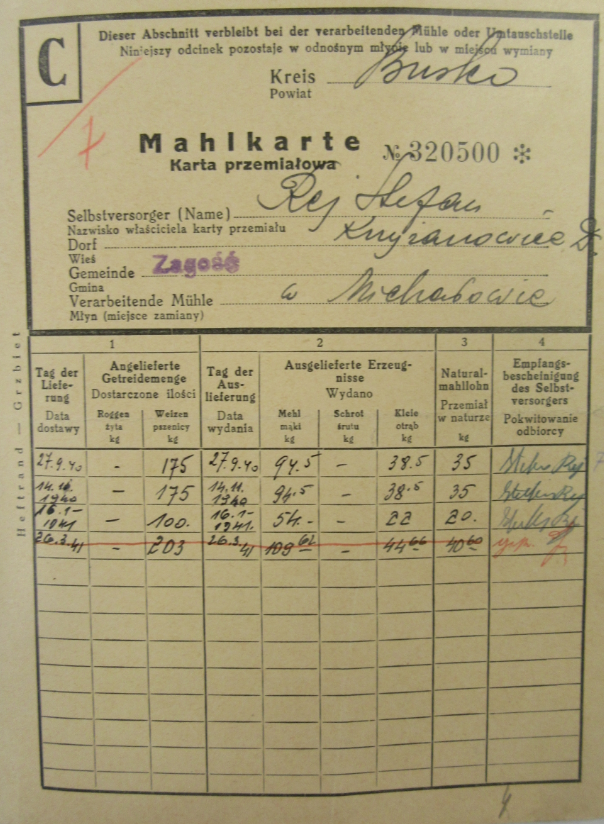 C
Dieser Abschnitt verbleibt bei der verarbeitenden Mühle oder Umtauschstelle
Niniejszy odcinek pozostaje w odnośnym młynie lub w miejscu wymiany
Kreis Busko
Powiat
7
Mahlkarte № 320500 *
Karta przemiałowa
Selbstversorger (Name) Rej Stefan
Nazwisko właściciela karty przemiału
Dorf
Wieś
Gemeinde Zagość
Gmina
Verarbeitende Mühle w Michałowie
Młyn (miejsce zamiany)
Heftrand — Grzbiet
1 2 3 4
Tag der Lieferung Data dostawy
Angelieferte Getreidemenge Dostarczone ilości
Roggen żyta kg
Weizen pszenicy kg
Tag der Auslieferung Data wydania
Ausgelieferte Erzeugnisse Wydano
Mehl mąki kg
Schrot śrutu kg
Kleie otrąb kg
Naturalmahllohn Przemiał w naturze kg
Empfangsbescheinigung des Selbstversorgers Pokwitowanie odbiorcy
27.9.40 - 175 27.9.40 94.5 - 38.5 35 Stefan Rej
14.11.1940 - 175 14.11.1940 94.5 - 38.5 35 Stefan Rej
16.1-1941 - 100. 16.1-1941. 54.- - 22 20.
26.3.41 - 203 26.3.41 109 62 - 44 66 40 60